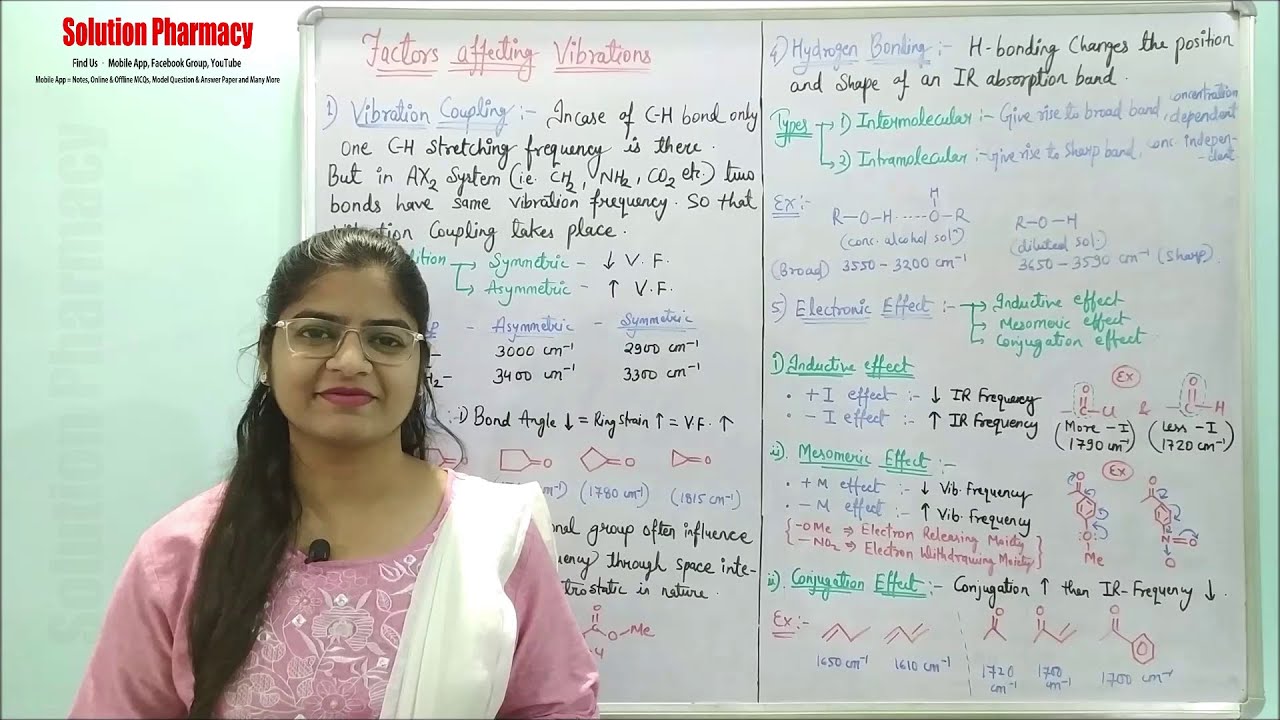 Solution Pharmacy
Find Us - Mobile App, Facebook Group, YouTube
Mobile App = Notes, Online & Offline MCQs, Model Question & Answer Paper and Many More
Solution Pharmacy
Factors affecting Vibrations
1) Vibration Coupling :- Incase of C-H bond only
one C-H stretching frequency is there.
But in AX2 System (ie. CH2, NH2, CO2 etc.) two
bonds have same vibration frequency. So that
Coupling takes place.
Symmetric - ↓ V.F.
Asymmetric - ↑ V.F.
- Asymmetric - Symmetric
3000 cm-1 2900 cm-1
3400 cm-1 3300 cm-1
:- i) Bond Angle ↓ = Ring Strain ↑ = V.F. ↑
O O O
(1780 cm-1) (1815 cm-1)
group often influence
through space inte-
in nature.
O
C O Me
4) Hydrogen Bonding :- H-bonding Changes the position
and Shape of an IR absorption band.
Types → 1) Intermolecular :- Give rise to broad band, concentration dependent
→ 2) Intramolecular :- give rise to Sharp band, conc. indepen-
-dent
Ex :-
H
R-O-H ----- O-R R-O-H
(conc. alcohol soln) (diluted sol.)
(Broad) 3550-3200 cm-1 3650-3590 cm-1 (Sharp).
5) Electronic Effect :- → Inductive effect
→ Mesomeric effect
→ Conjugation effect
i) Inductive effect
• + I effect :- ↓ IR Frequency
• - I effect :- ↑ IR Frequency
Ex
O O
C Cl & C H
(More -I) (Less -I)
(1790 cm-1) (1720 cm-1)
ii). Mesomeric Effect :-
• + M effect :- ↓ Vib. Frequency
• - M effect :- ↑ Vib. Frequency
{ -OMe ⇒ Electron Releasing Moiety
- NO2 ⇒ Electron Withdrawing Moiety }
Ex
O O
O N=O
Me O
ii). Conjugation Effect :- Conjugation ↑ then IR-Frequency ↓.
Ex :-
O O O
1650 cm-1 1610 cm-1 1720 cm-1 1700 cm-1 1700 cm-1